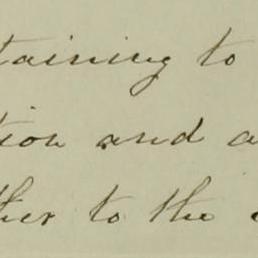 taining to
tion and a
ther to the